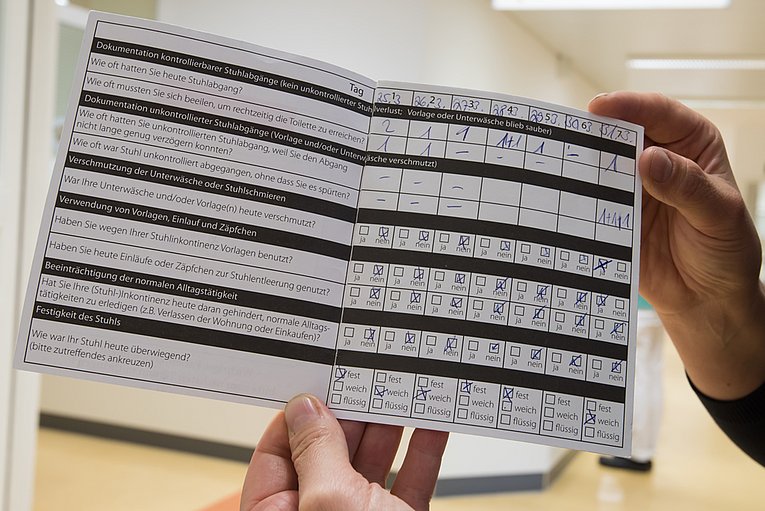 Tag
Dokumentation kontrollierbarer Stuhlabgänge (kein unkontrollierter Stuhlverlust: Vorlage oder Unterwäsche blieb sauber)
Wie oft hatten Sie heute Stuhlgang? 2 1 1 1+1 1 – –
Wie oft mussten Sie sich beeilen, um rechtzeitig die Toilette zu erreichen? 1 1 – – – 1
Dokumentation unkontrollierter Stuhlabgänge (Vorlage und/oder Unterwäsche verschmutzt)
Wie oft hatten Sie unkontrollierten Stuhlabgang, weil Sie den Abgang
nicht lange genug verzögern konnten? – – –
Wie oft war Stuhl unkontrolliert abgegangen, ohne dass Sie es spürten? – – – 1+1+1
Verschmutzung der Unterwäsche oder Stuhlschmieren
War Ihre Unterwäsche und/oder Vorlage(n) heute verschmutzt?
ja nein ja nein ja nein ja nein ja nein ja nein ja nein
Verwendung von Vorlagen, Einlauf und Zäpfchen
Haben Sie wegen Ihrer Stuhlinkontinenz Vorlagen benutzt?
ja nein ja nein ja nein ja nein ja nein ja nein ja nein
Haben Sie heute Einläufe oder Zäpfchen zur Stuhlentleerung genutzt?
ja nein ja nein ja nein ja nein ja nein ja nein ja nein
Beeinträchtigung der normalen Alltagstätigkeit
Hat Sie Ihre (Stuhl-)Inkontinenz heute daran gehindert, normale Alltags-
tätigkeiten zu erledigen (z.B. Verlassen der Wohnung oder Einkaufen)?
ja nein ja nein ja nein ja nein ja nein ja nein ja nein
Festigkeit des Stuhls
Wie war Ihr Stuhl heute überwiegend?
(bitte zutreffendes ankreuzen)
fest fest fest fest fest fest fest
weich weich weich weich weich weich weich
flüssig flüssig flüssig flüssig flüssig flüssig flüssig